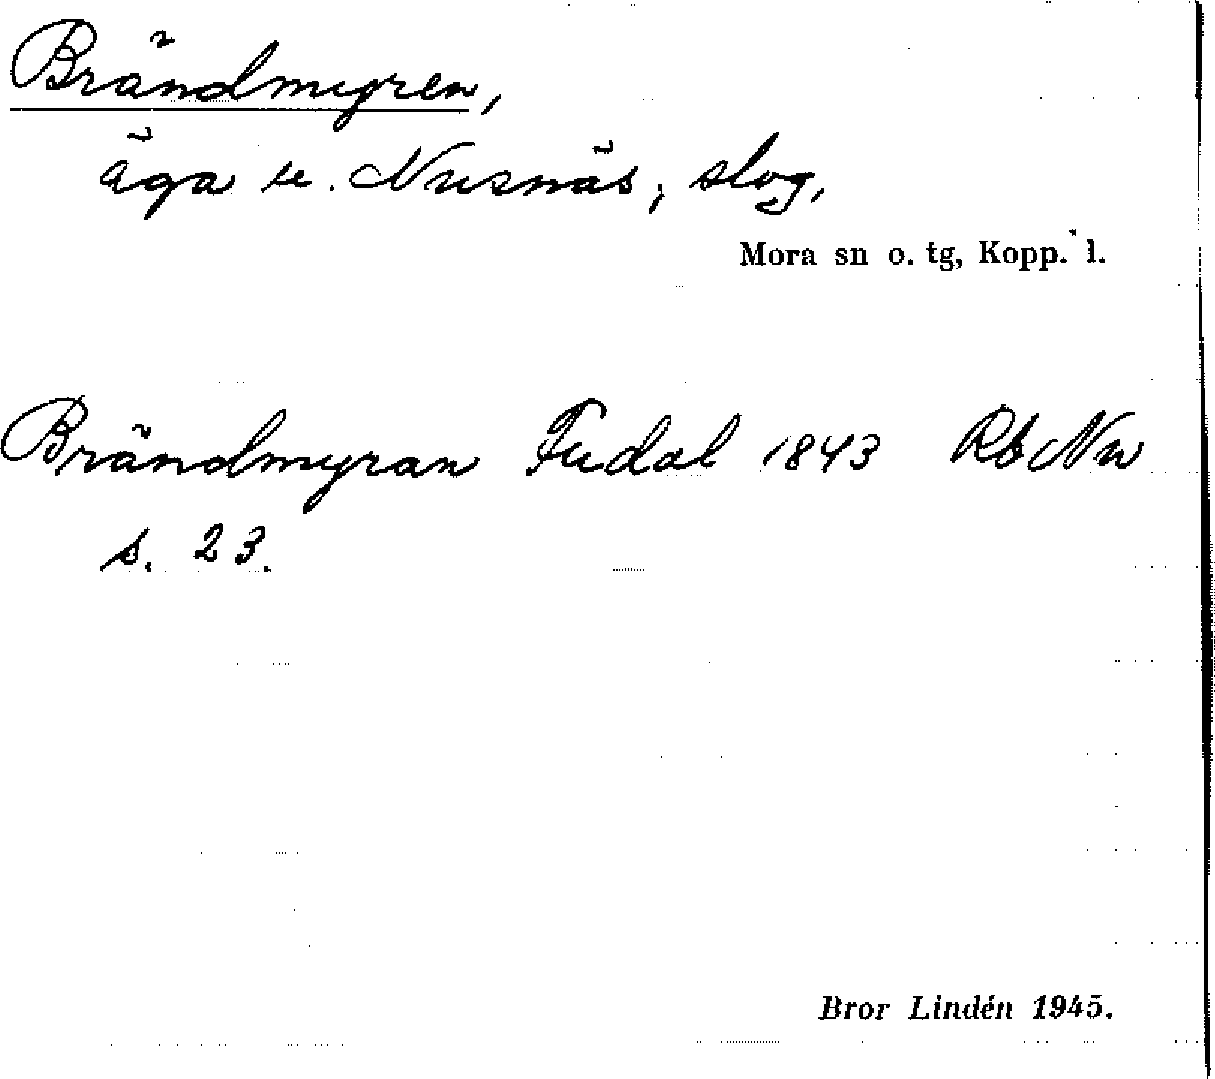 Brändmyren,
äga u. Nusnäs, slog,
Mora sn o. tg, Kopp. l.
Brändmyran Fudal 1843 Rb Nu
s. 23.
Bror Lindén 1945.